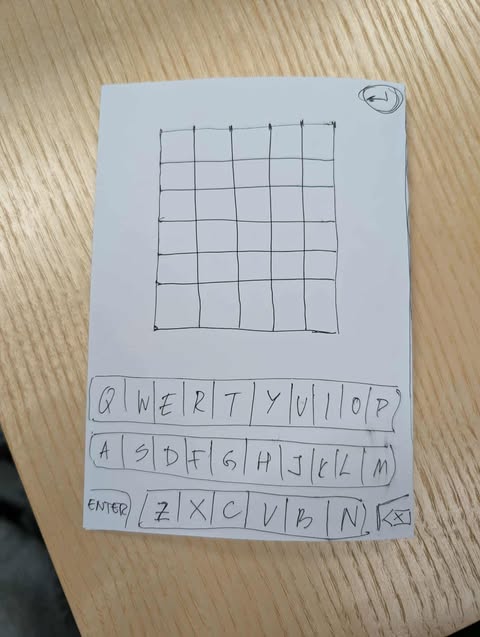 Q W E R T Y U I O P
A S D F G H J K L M
ENTER Z X C V B N X